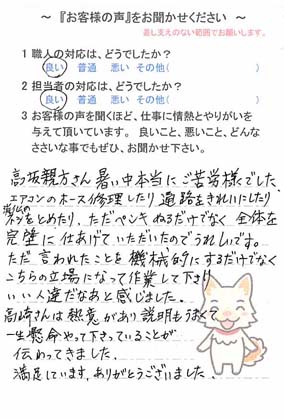 ～ 『お客様の声』をお聞かせください ～
差し支えのない範囲でお願いします。
1 職人の対応は、どうでしたか？
良い 普通 悪い その他( )
2 担当者の対応は、どうでしたか？
良い 普通 悪い その他( )
3 お客様の声を聞くほど、仕事に情熱とやりがいを
与えて頂いています。 良いこと、悪いこと、どんな
ささいな事でもぜひ、お聞かせ下さい。
高坂親方さん 暑い中本当にご苦労様でした。
エアコンのホース修理したり 通路をきれいにしたり
ネジをとめたり、ただペンキぬるだけでなく 全体を
完璧に仕あげていただいたのでうれしいです。
ただ言われたことを機械的にするだけでなく
こちらの立場になって作業して下さり
いい人達だなあと感じました。
高崎さんは熱意があり説明もうまくて
一生懸命やって下さっていることが
伝わってきました。
満足しています。ありがとうございました。